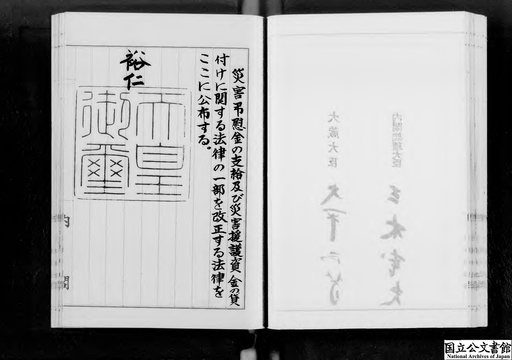 内閣総理大臣 三木武夫
大蔵大臣 大平正芳
災害弔慰金の支給及び災害援護資金の貸
付けに関する法律の一部を改正する法律を
ここに公布する。
裕仁
天皇
御璽
内閣
国立公文書館
National Archives of Japan